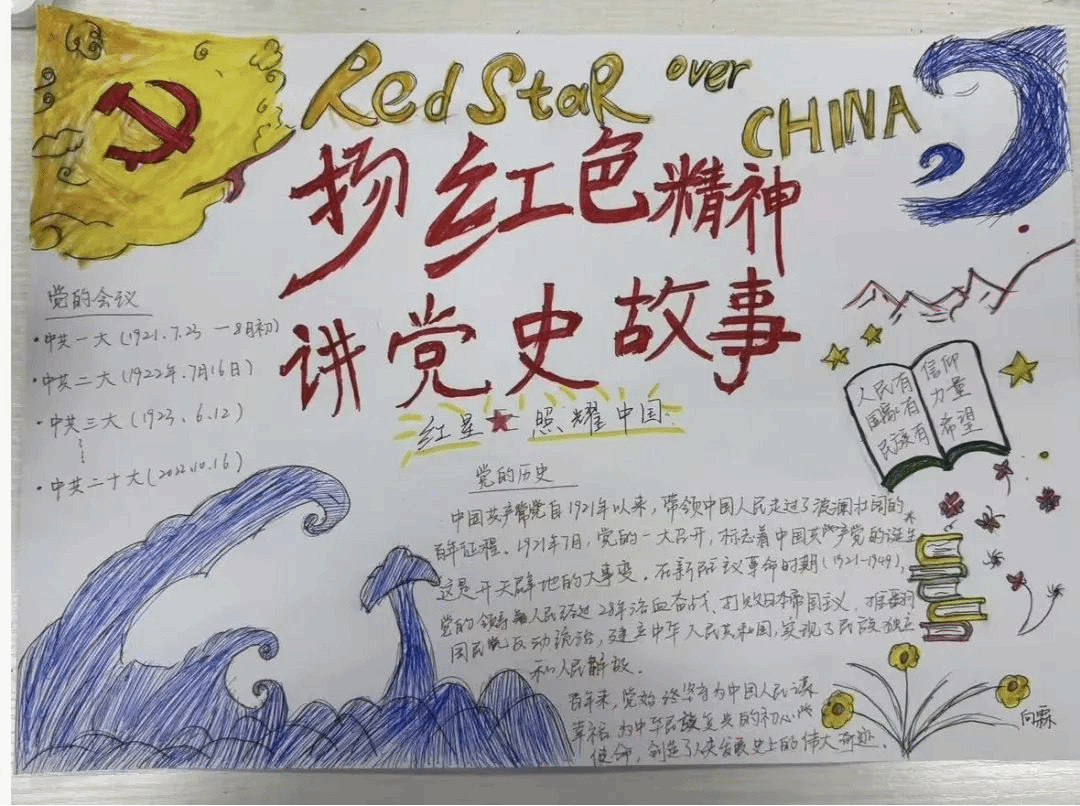 Red Star over
CHINA
扬红色精神
讲党史故事
红星照耀中国.
党的会议
·中共一大(1921.7.23一8月初)
·中共二大(1922年.7月16日)
·中共三大(1923、6.12)
·中共二十大(2022.10.16)
人民有信仰
国家有力量
民族有希望
党的历史
中国共产党自1921年以来,带领中国人民走过了波澜壮阔的
百年征程。1921年7月,党的一大召开,标志着中国共产党的诞生
这是开天辟地的大事变。在新民主义革命时期(1921-1949),
党的领导人民经过28年浴血奋战,打败日本帝国主义,推翻
国民党反动统治,建立中华人民共和国,实现了民族独立
和人民解放.
百年来,党始终坚守为中国人民谋
幸福 为中华民族复兴的初心
使命,创造了人类发展史上的伟大奇迹.
向霖